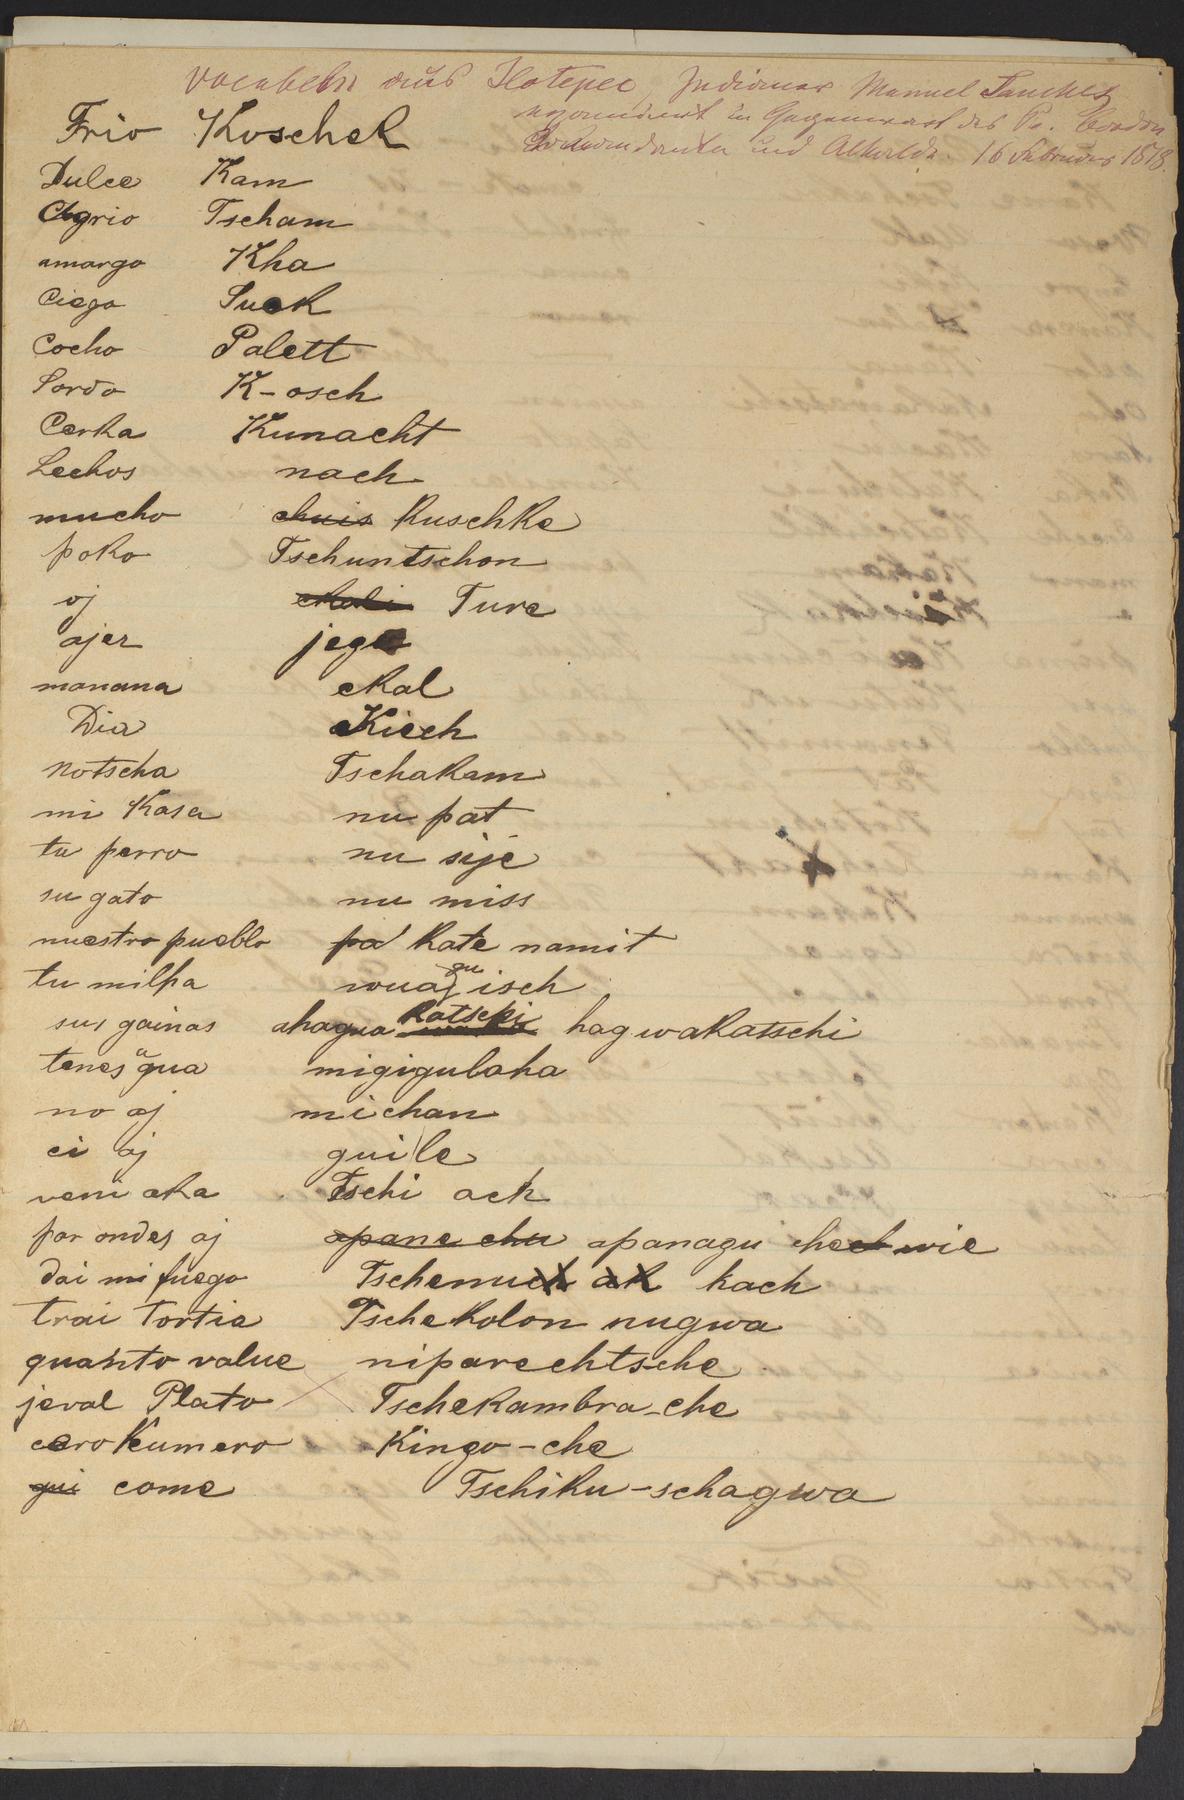 Vocabeln aus Ilotepec, Indianer Manuel Sanchez
in Gegenwart des
und Alkalde. 16 Februar 1878.
Frio Koschek
Dulce Kam
Agrio Tscham
amargo Kha
Ciego Suek
Cocho Palett
Sordo K-osch
Cerka Kunacht
Lechos nach
mucho chuis Kuschke
poko Tschuntschon
oj Ture
ajer jega
manana ekal
Dia Kiech
notscha Tschakam
mi Kasa nu pat
tu perro nu sije
su gato nu miss
nuestro pueblo pa kate namit
tu milpa wuaguisch
sus gainas ahagua katschi hagwakatschi
tenes agua migigulaha
no aj michan
ci aj guile
veni aka Tschi ack
por ondes aj apane chu apanagu chech wie
dai mi fuego Tschemuch ak kach
trai tortia Tschekolon nugwa
quanto value niparechtsche
jeval Plato Tschekambra-che
cero kumero Kingo-che
gui come Tschiku-schagwa